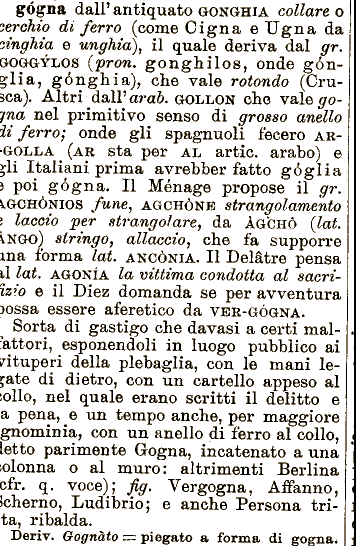 gógna dall'antiquato GONGHIA collare o
cerchio di ferro (come Cigna e Ugna da
cinghia e unghia), il quale deriva dal gr.
GOGGÝLOS (pron. gonghilos, onde gón-
glia, gónghia), che vale rotondo (Cru-
sca). Altri dall'arab. GOLLON che vale go-
gna nel primitivo senso di grosso anello
di ferro; onde gli spagnuoli fecero AR-
GOLLA (AR sta per AL artic. arabo) e
gli Italiani prima avrebber fatto góglia
e poi gógna. Il Ménage propose il gr.
AGCHÒNIOS fune, AGCHÒNE strangolamento
e laccio per strangolare, da ÀGCHÔ (lat.
ÀNGO) stringo, allaccio, che fa supporre
una forma lat. ANCÒNIA. Il Delâtre pensa
al lat. AGONÍA la vittima condotta al sacri-
fizio e il Diez domanda se per avventura
possa essere aferetico da VER-GÓGNA.
Sorta di gastigo che davasi a certi mal-
fattori, esponendoli in luogo pubblico ai
vituperi della plebaglia, con le mani le-
gate di dietro, con un cartello appeso al
collo, nel quale erano scritti il delitto e
la pena, e un tempo anche, per maggiore
ignominia, con un anello di ferro al collo,
detto parimente Gogna, incatenato a una
colonna o al muro: altrimenti Berlina
(cfr. q. voce); fig. Vergogna, Affanno,
Scherno, Ludibrio; e anche Persona tri-
sta, ribalda.
Deriv. Gognàto = piegato a forma di gogna.